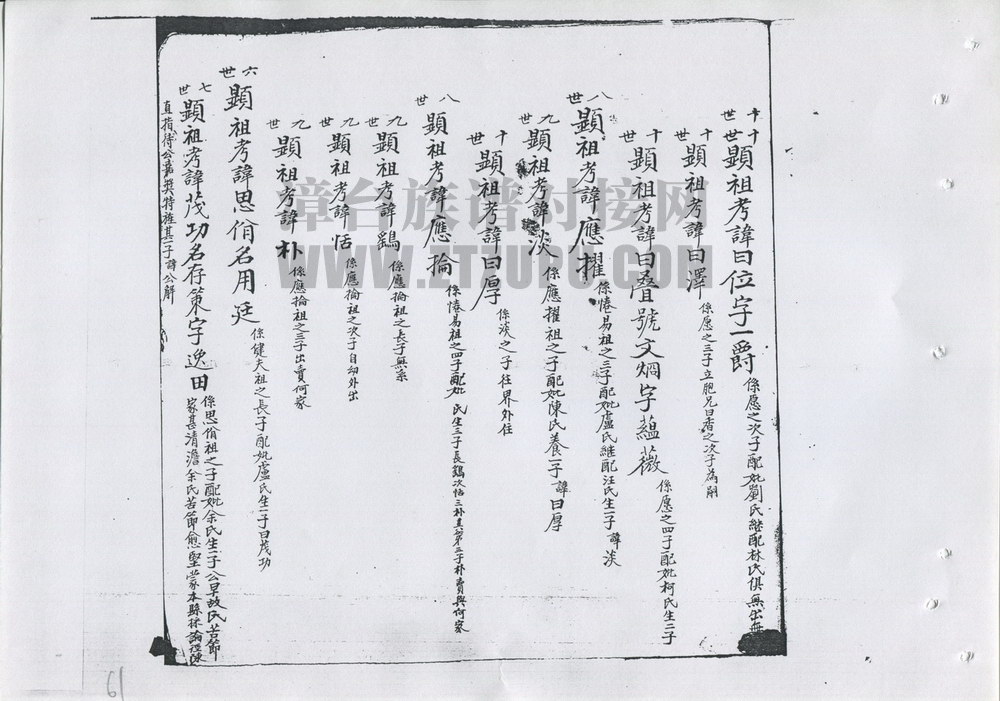 十世 顕祖考諱曰位字一爵 係愿之次子配妣劉氏継配林氏俱無出
十世 顕祖考諱曰澤 係愿之三子立胞兄曰香之次子為嗣
十世 顕祖考諱曰叠號文炯字蘊薇 係愿之四子配妣柯氏生二子
八世 顕祖考諱應擢 係惓易祖之三子配妣盧氏継配汪氏生一子諱淡
九世 顕祖考諱淡 係應擢祖之子配妣陳氏養一子諱曰厚
十世 顕祖考諱曰厚 係淡之子往界外住
八世 顕祖考諱應掄 係惓易祖之四子配妣 氏生三子長鷄次恬三朴其第三子朴賣與何家
九世 顕祖考諱鷄 係應掄祖之長子無系
九世 顕祖考諱恬 係應掄祖之次子自幼外出
九世 顕祖考諱朴 係應掄祖之三子出賣何家
六世 顕祖考諱思俏名用廷 係健夫祖之長子配妣盧氏生一子曰茂功
七世 顕祖考諱茂功名存策字逸田 係思俏祖之子配妣余氏生二子公早故氏苦節
家甚清澹余氏苦節愈堅蒙本縣林
直指侍公嘉奬特旌其子諱公解
61
漳台族谱对接网
WWW.ZTZUPU.COM